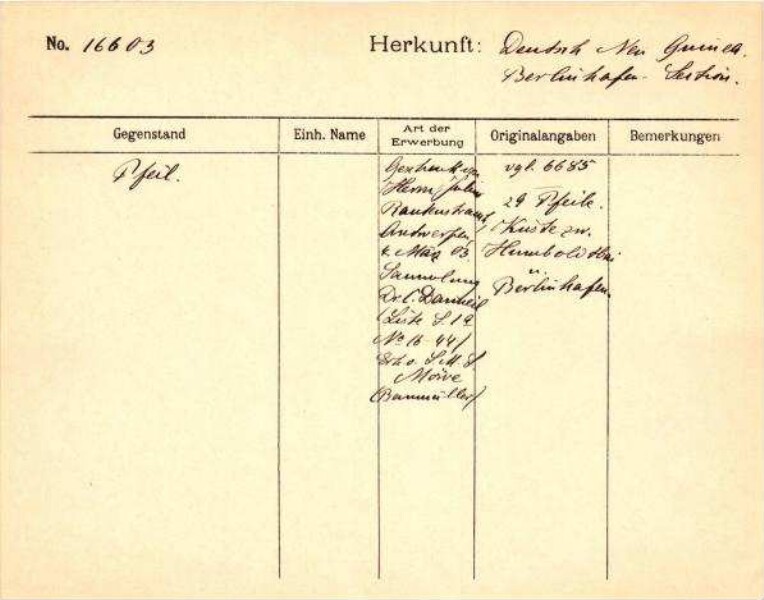 No. 16603
Herkunft: Deutsch Neu Guinea.
Berlinhafen-Section.
Gegenstand
Einh. Name
Art der Erwerbung
Originalangaben
Bemerkungen
Pfeil.
Geschenk von
Herrn Julius
Rautenstrauch,
Antwerpen,
4. März 03.
Sammlung
Dr. C. Danneil
(Liste S. 12
No 16-44)
S. M. S.
Möwe
(Baumüller)
vgl. 6685
29 Pfeile.
Küste zw.
Humboldtbai
u.
Berlinhafen.